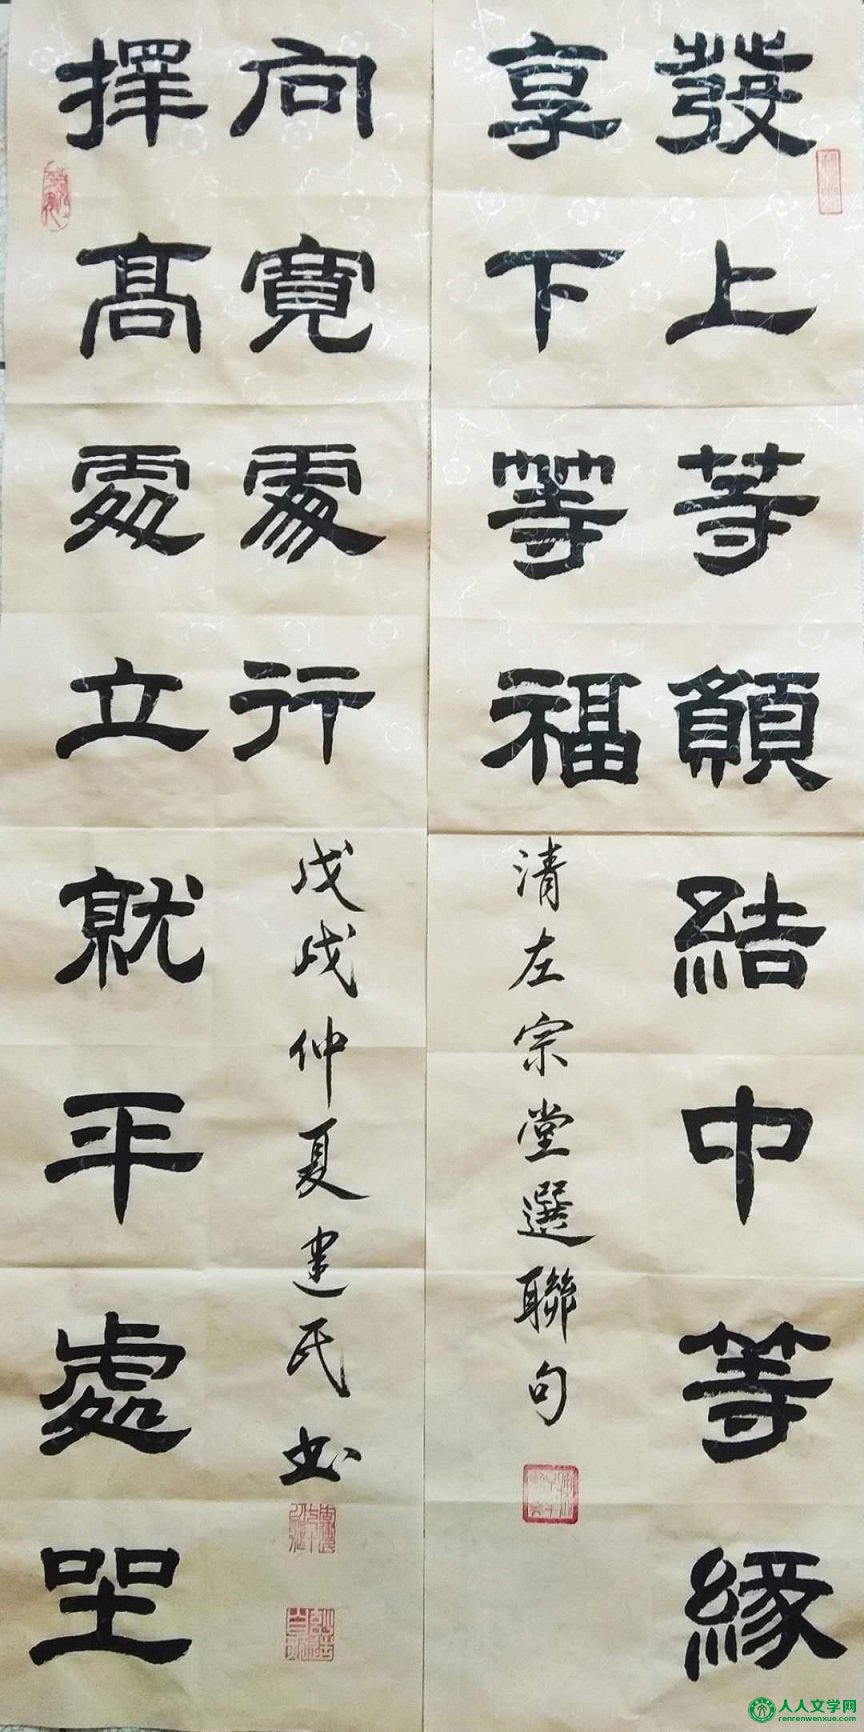 發上等願結中等緣
享下等福
清左宗堂選聯句
擇高處立就平處坐
向寬處行
戊戌仲夏建民书
人人文学网
renrenwenxue.com